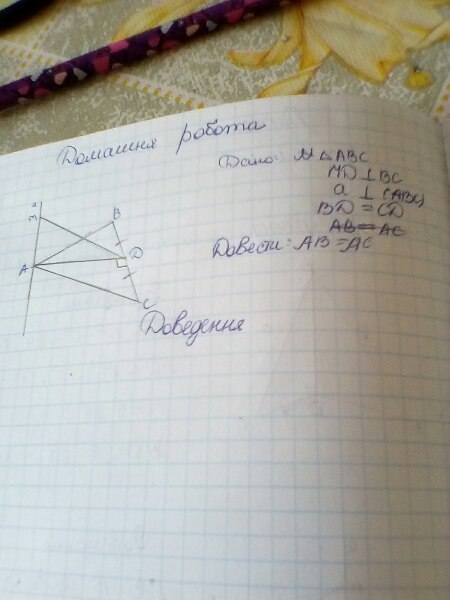 Домашня робота
Дано: △ABC
MD ⊥ BC
a ⊥ (ABC)
BD = CD
AB = AC
Довести: AB = AC
a
M
B
A
D
C
Доведення